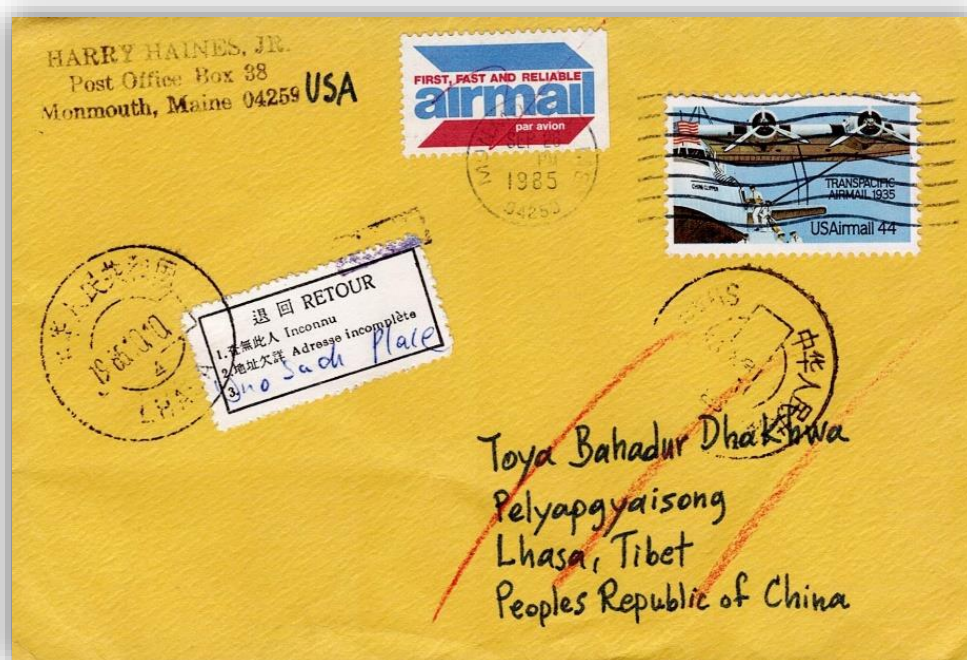 HARRY HAINES, JR.
Post Office Box 38
Monmouth, Maine 04259 USA
FIRST, FAST AND RELIABLE
airmail
par avion
SEP 20
PM
1985
04259
CHINA CLIPPER
TRANSPACIFIC
AIRMAIL 1935
USAirmail 44
退回 RETOUR
1. 查無此人 Inconnu
2. 地址欠詳 Adresse incomplète
3. no Such Place
中华人民共和国
1985.10.10
4
中华人民
Toya Bahadur Dhakhwa
Pelyapgyaisong
Lhasa, Tibet
Peoples Republic of China